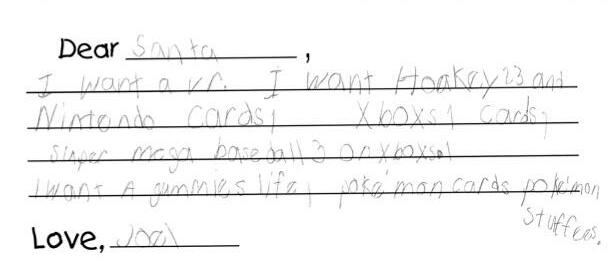 Dear Santa,
I want a vr. I want Hoakey 23 and
Nintendo cards, Xboxs1 cards,
Super mega baseball 3 on xboxs1
I want A gummies life, poke'mon cards poke'mon
stuffees.
Love, Joel